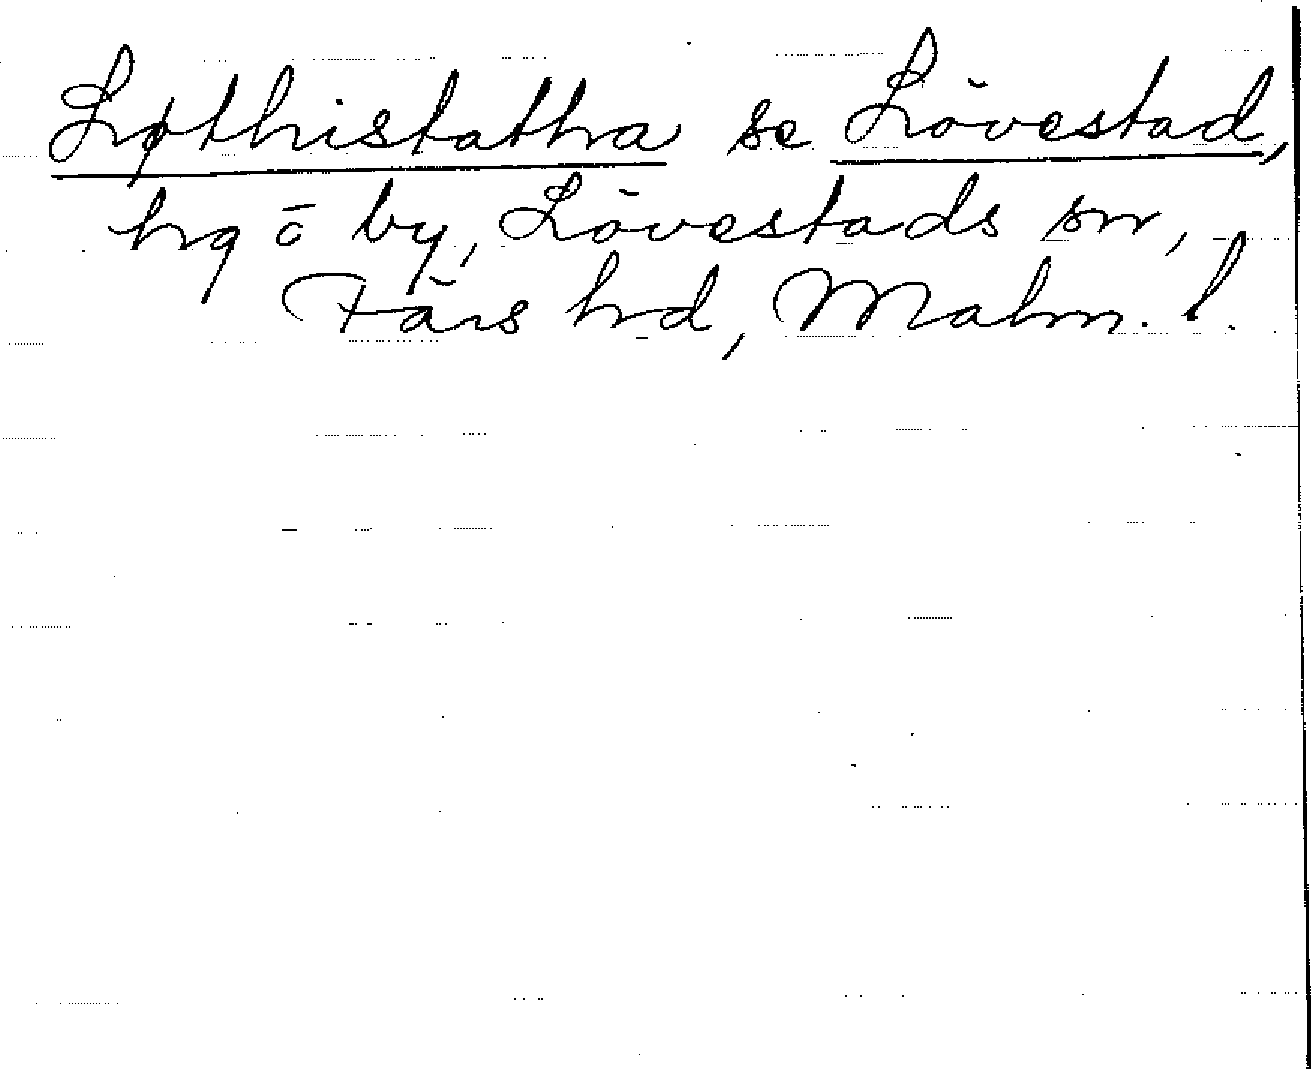 Løthistatha se Lövestad,
hg ō by, Lövestads sn,
Färs hd, Malm. l.